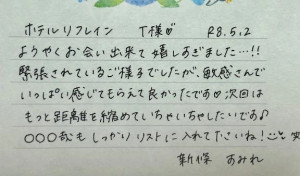 ホテルリフレイン T様♡ R8.5.2
ようやくお会い出来て嬉しすぎました…!!
緊張されているご様子でしたが、敏感さんで
いっぱい感じてもらえて良かったです♡次回は
もっと距離を縮めていちゃいちゃしたいです♪
○○○もしっかりリストに入れて下さいね!
新條 すみれ